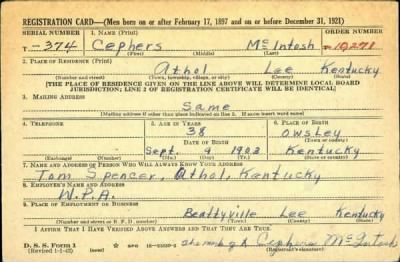 REGISTRATION CARD—(Men born on or after February 17, 1897 and on or before December 31, 1921)
SERIAL NUMBER 1. NAME (Print) ORDER NUMBER
T-374 Cephers McIntosh 10,271
(First) (Middle) (Last)
2. PLACE OF RESIDENCE (Print)
Athol Lee Kentucky
(Number and street) (Town, township, village, or city) (County) (State)
[THE PLACE OF RESIDENCE GIVEN ON THE LINE ABOVE WILL DETERMINE LOCAL BOARD
JURISDICTION; LINE 2 OF REGISTRATION CERTIFICATE WILL BE IDENTICAL]
3. MAILING ADDRESS
Same
(Mailing address if other than place indicated on line 2. If same insert word same)
4. TELEPHONE 5. AGE IN YEARS 6. PLACE OF BIRTH
38 Owsley
DATE OF BIRTH (Town or county)
Sept. 9 1903 Kentucky
(Exchange) (Number) (Mo.) (Day) (Yr.) (State or country)
7. NAME AND ADDRESS OF PERSON WHO WILL ALWAYS KNOW YOUR ADDRESS
Tom Spencer, Athol, Kentucky
8. EMPLOYER'S NAME AND ADDRESS
W.P.A.
9. PLACE OF EMPLOYMENT OR BUSINESS
Beattyville Lee Kentucky
(Number and street or R. F. D. number) (Town) (County) (State)
I AFFIRM THAT I HAVE VERIFIED ABOVE ANSWERS AND THAT THEY ARE TRUE.
D. S. S. Form 1
(Revised 1-1-42) Cephers McIntosh